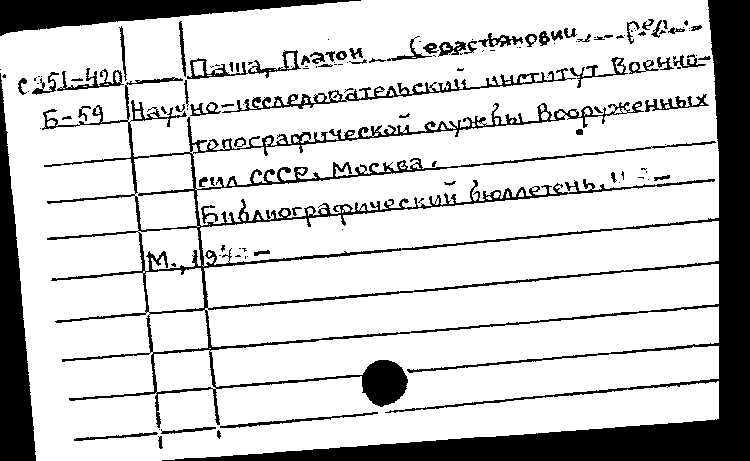 С351-420 Паша, Платон Севастьянович, ред.
Б-59 Научно-исследовательский институт Военно-
топографической службы Вооруженных
сил СССР. Москва.
Библиографический бюллетень.
М.,